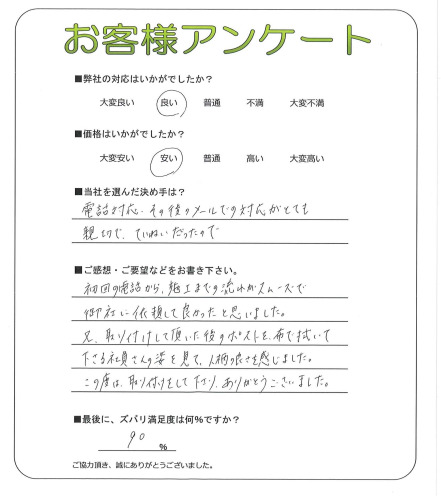 お客様アンケート
■弊社の対応はいかがでしたか？
大変良い 良い 普通 不満 大変不満
■価格はいかがでしたか？
大変安い 安い 普通 高い 大変高い
■当社を選んだ決め手は？
電話対応、その後のメールでの対応がとても
親切で、ていねいだったので
■ご感想・ご要望などをお書き下さい。
初回の電話から、施工までの流れがスムーズで
御社に依頼して良かったと思いました。
又、取り付けして頂いた後のポストを、布で拭いて
下さる社員さんの姿を見て、人柄の良さを感じました。
この度は、取り付けをして下さり、ありがとうございました。
■最後に、ズバリ満足度は何%ですか？
90 %
ご協力頂き、誠にありがとうございました。